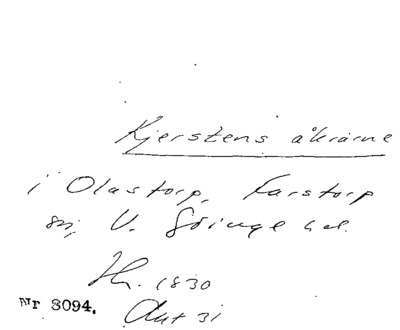 Kjerstens åkrarne
i Olastorp, Farstorp
sn, V. Göinge hd.
Th. 1830
Akt 31
Nr 3094.